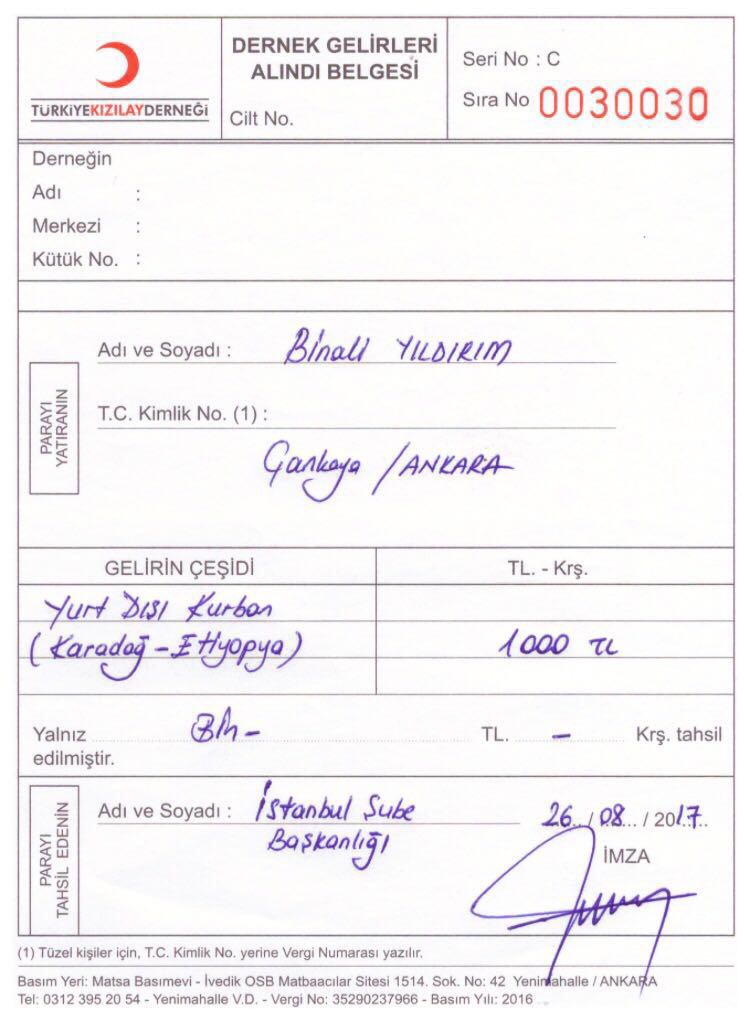 TÜRKİYEKIZILAYDERNEĞİ
DERNEK GELİRLERİ
ALINDI BELGESİ
Cilt No.
Seri No : C
Sıra No 0030030
Derneğin
Adı :
Merkezi :
Kütük No. :
PARAYI
YATIRANIN
Adı ve Soyadı : Binali YILDIRIM
T.C. Kimlik No. (1) :
Çankaya / ANKARA
GELİRİN ÇEŞİDİ
TL. - Krş.
Yurt Dışı Kurban
(Karadağ - Etiyopya)
1000 TL
Yalnız Bin- TL. - Krş. tahsil
edilmiştir.
PARAYI
TAHSİL EDENİN
Adı ve Soyadı : İstanbul Şube
Başkanlığı
26 / 08 / 2017
İMZA
(1) Tüzel kişiler için, T.C. Kimlik No. yerine Vergi Numarası yazılır.
Basım Yeri: Matsa Basımevi - İvedik OSB Matbaacılar Sitesi 1514. Sok. No: 42 Yenimahalle / ANKARA
Tel: 0312 395 20 54 - Yenimahalle V.D. - Vergi No: 35290237966 - Basım Yılı: 2016